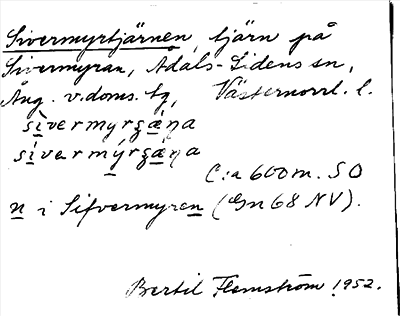 Sivermyrtjärnen, tjärn på
Sivermyran, Ådals-Lidens sn,
Ång. v. doms. tg, Västernorrl. l.
sìvermyrʂæ̀ŋa
sívarmýrʂæ̀ŋa
C:a 600 m. SO
n i Sifvermyren (Gn 68 NV).
Bertil Flemström 1952.